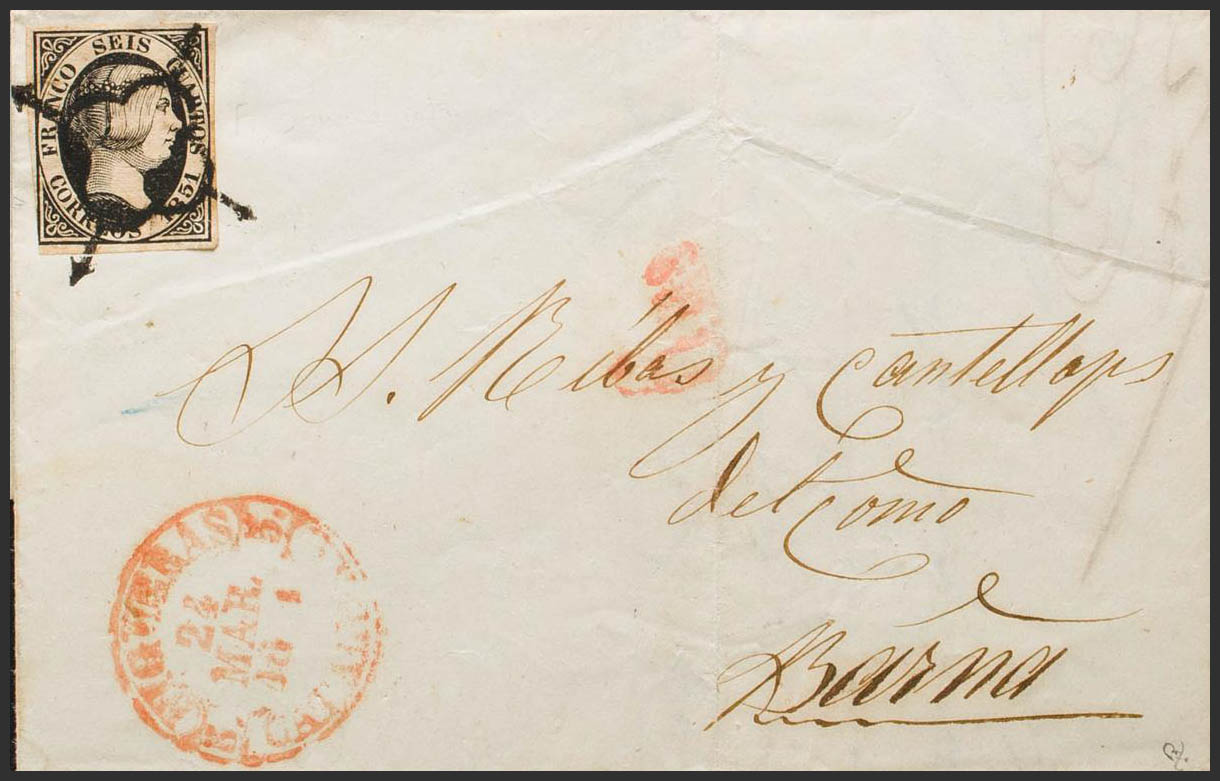 FRANCO SEIS CUARTOS
CORREOS 1851
S. S. Ribas y Cantellops
del Como
Barna
24
MAR.